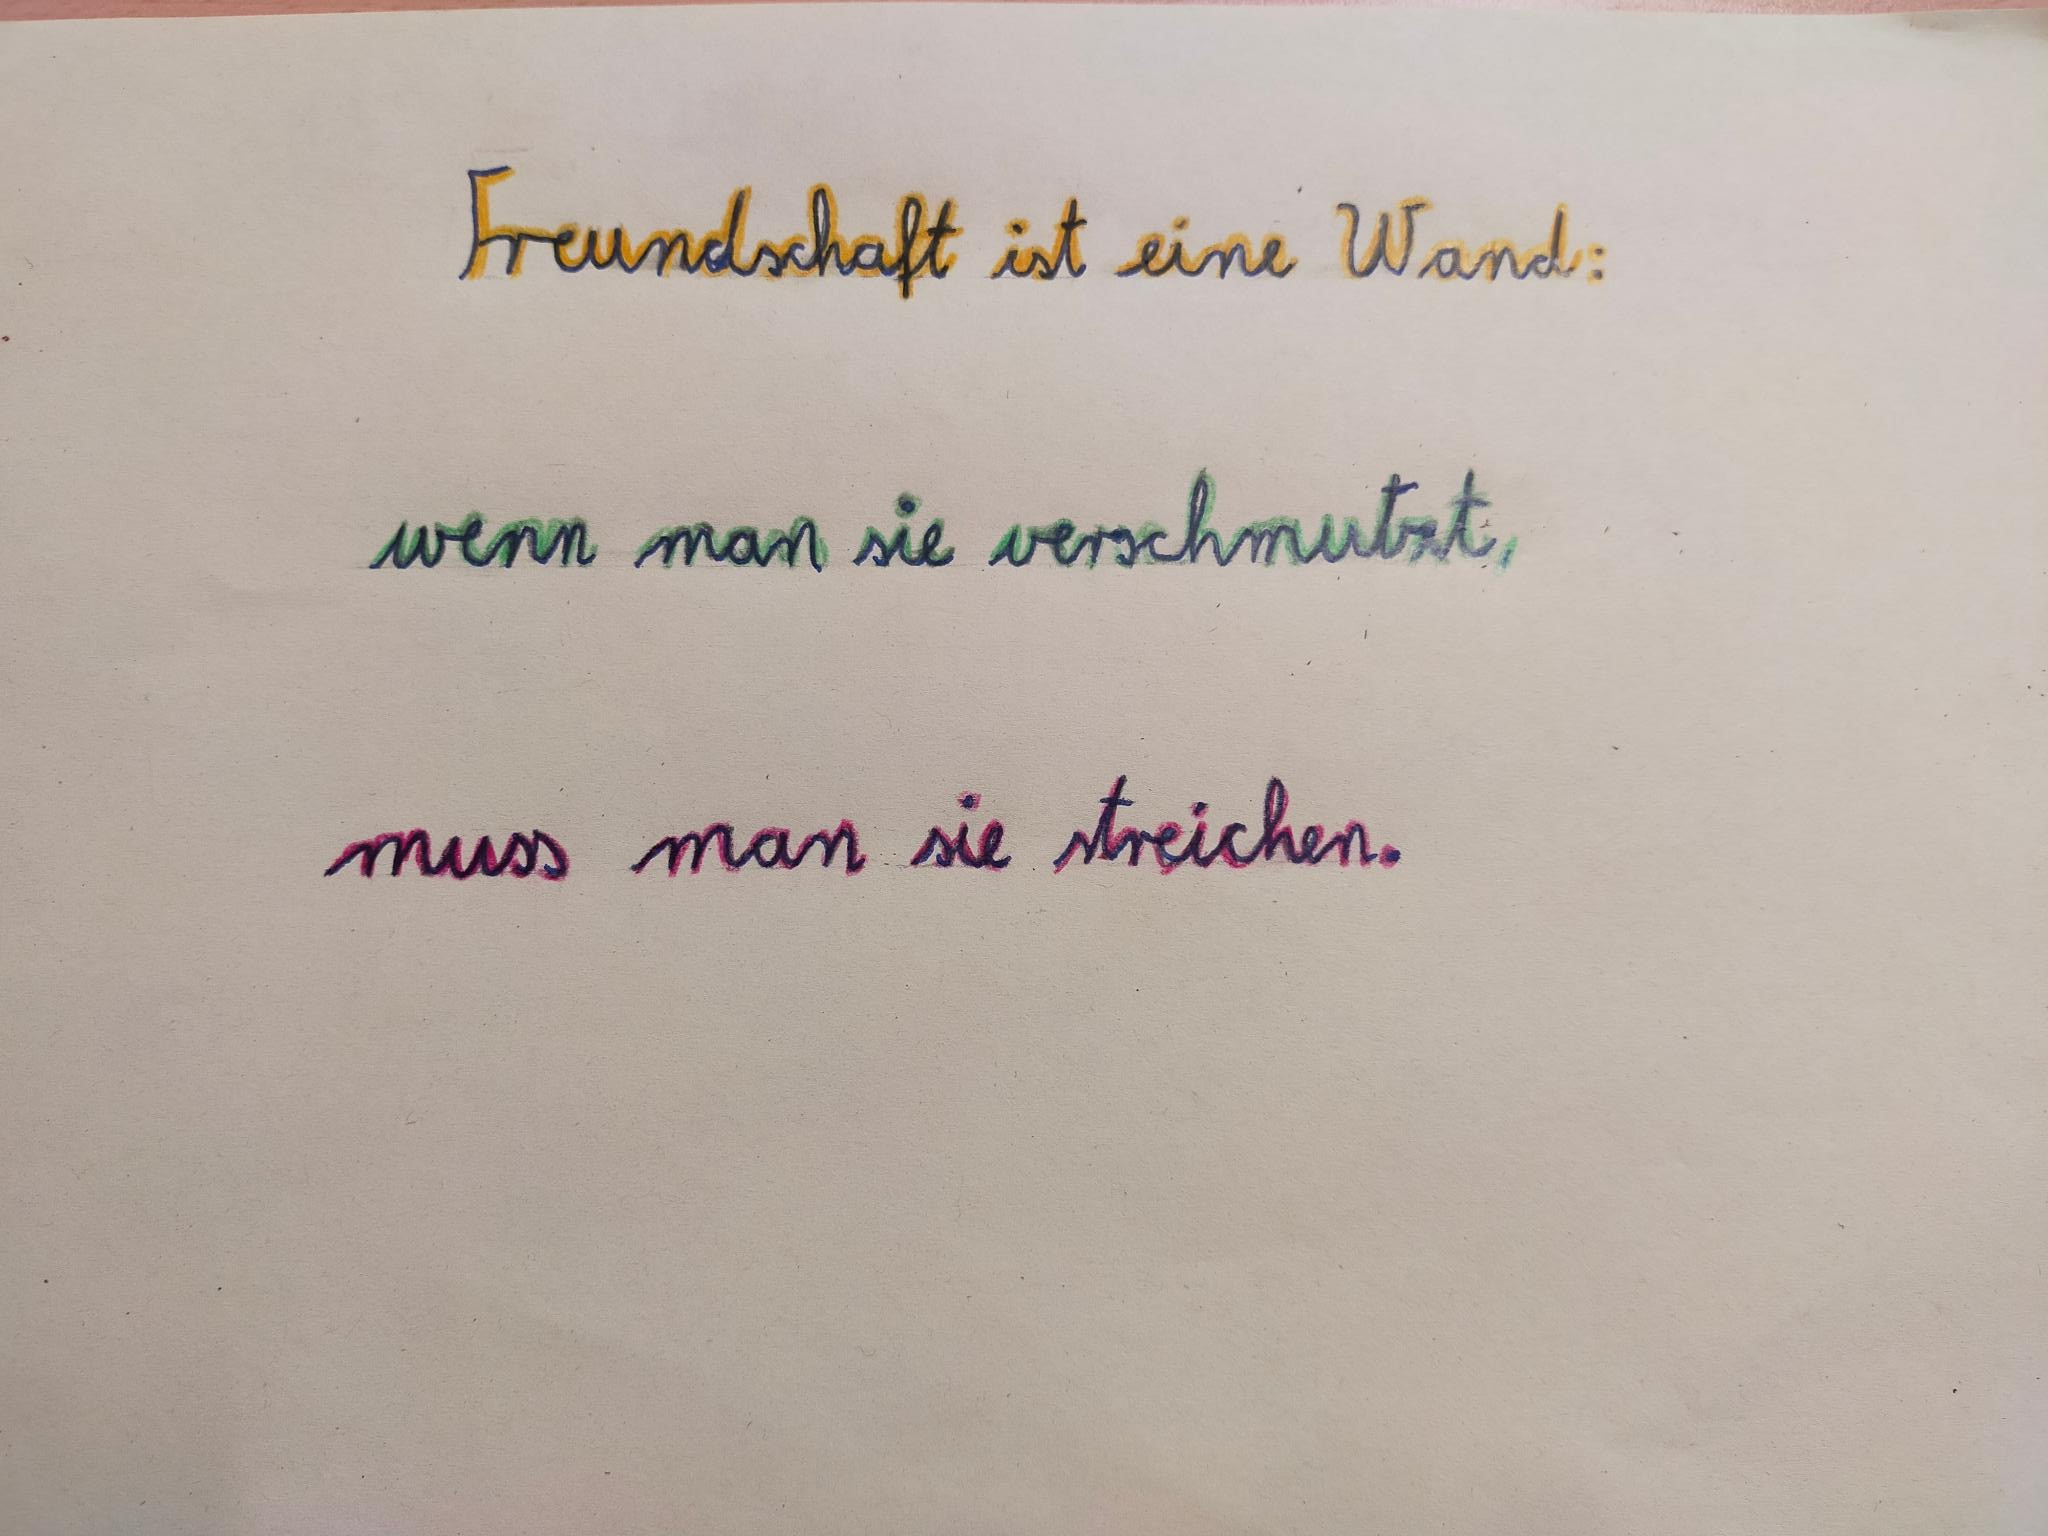 Freundschaft ist eine Wand:
wenn man sie verschmutzt,
muss man sie streichen.